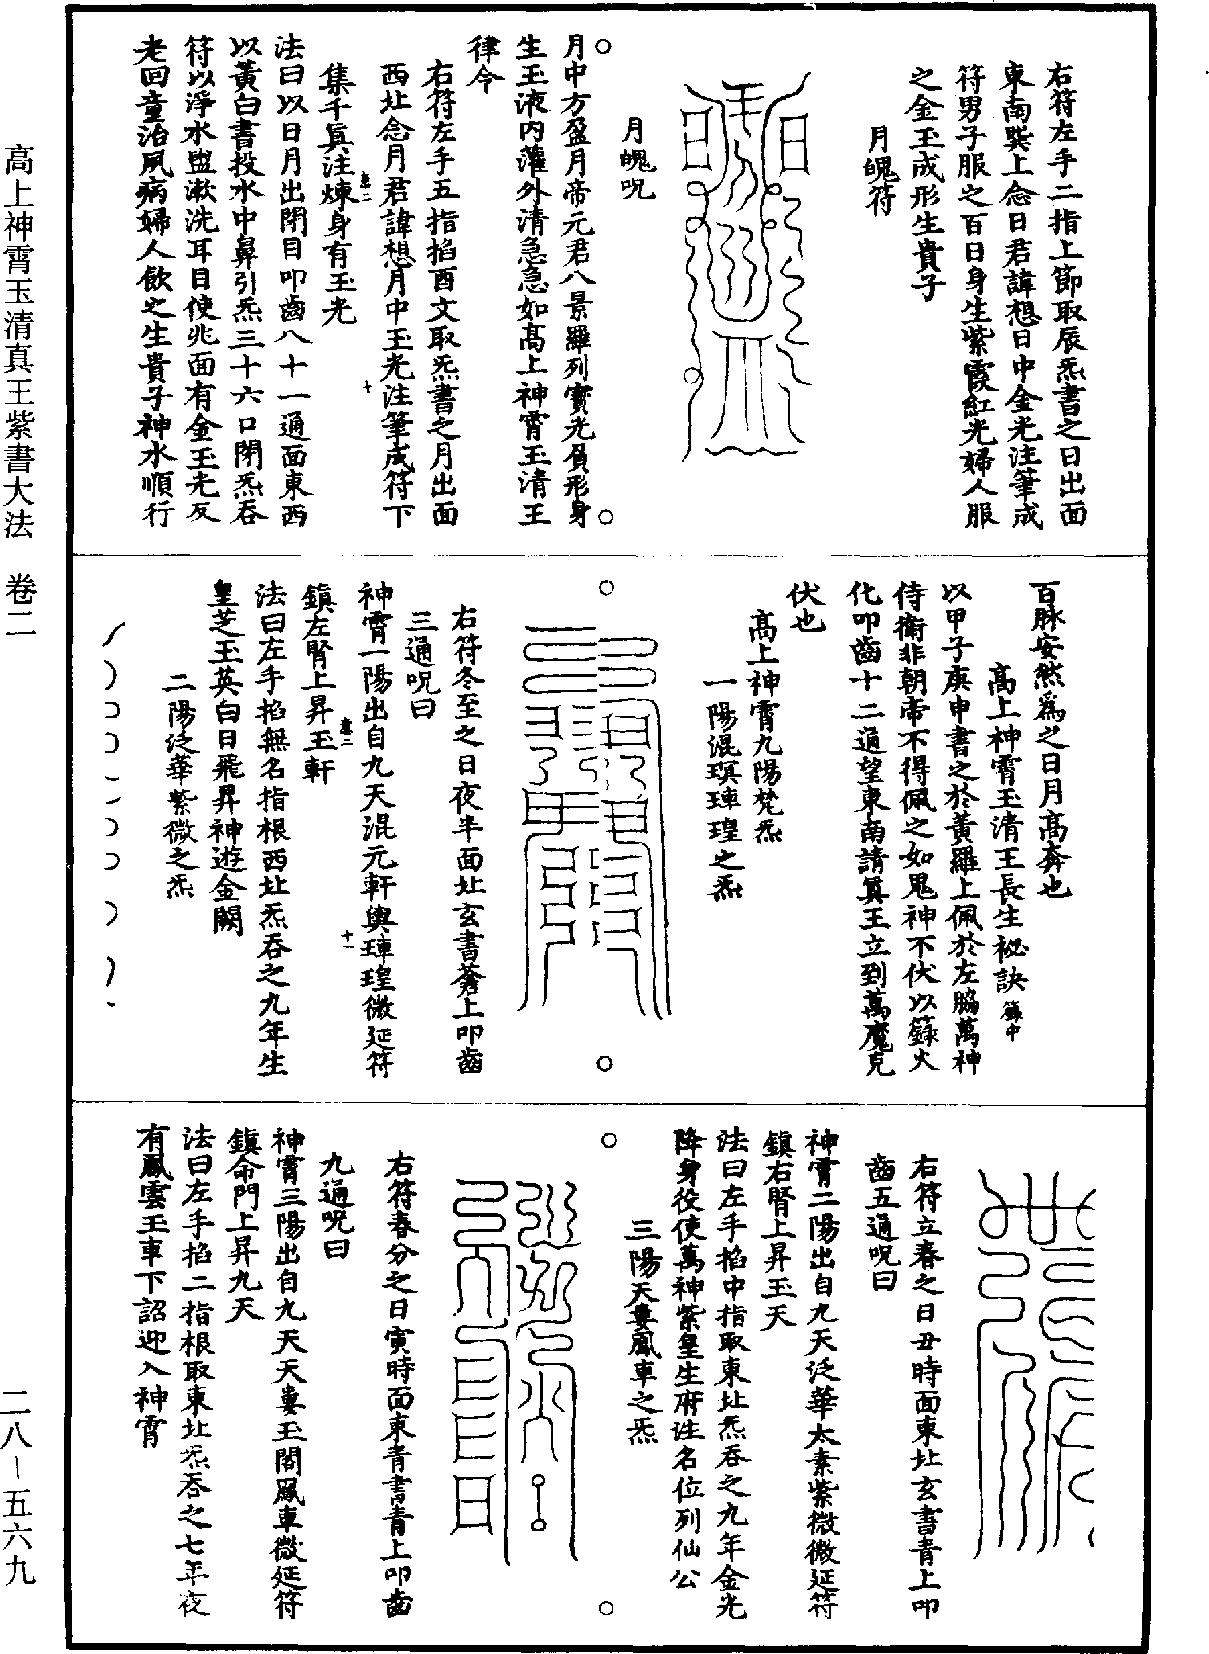 右符左手二指上節取辰炁書之日出面
東南巽上念日君諱想日中金光注筆成
符男子服之百日身生紫霞紅光婦人服
之金玉成形生貴子
月魄符
月魄呪
月中方盈月帝元君八景羅列寶光員形身
生玉液內灌外清急急如高上神霄玉清王
律令
右符左手五指掐酉文取炁書之月出面
西北念月君諱想月中玉光注筆成符下
集千真注煉身有玉光
法曰以日月出閉目叩齒八十一通面東西
以黃白書投水中鼻引炁三十六口閉炁吞
符以淨水盥漱洗耳目使兆面有金玉光反
老回童治夙病婦人飲之生貴子神水順行
百脉安然為之日月高奔也
高上神霄玉清王長生祕訣籙中
以甲子庚申書之於黃羅上佩於左脇萬神
侍衛非朝帝不得佩之如鬼神不伏以籙火
化叩齒十二通望東南請真王立到萬魔克
伏也
高上神霄九陽梵炁
一陽混瑱㻋瑝之炁
右符冬至之日夜半面北玄書蒼上叩齒
三通呪曰
神霄一陽出自九天混元軒輿㻋瑝微延符
鎮左腎上昇玉軒
法曰左手掐無名指根西北炁吞之九年生
皇芝玉英白日飛昇神遊金闕
二陽泛華紫微之炁
右符立春之日丑時面東北玄書青上叩
齒五通呪曰
神霄二陽出自九天泛華太素紫微微延符
鎮右腎上昇玉天
法曰左手掐中指取東北炁吞之九年金光
降身役使萬神紫皇生府注名位列仙公
三陽天婁鳳車之炁
右符春分之日寅時面東青書青上叩齒
九通呪曰
神霄三陽出自九天天婁玉閣鳳車微延符
鎮命門上昇九天
法曰左手掐二指根取東北炁吞之七年夜
有鳳雲玉車下詔迎入神霄
高上神霄玉清真王紫書大法　卷二
二八－五六九